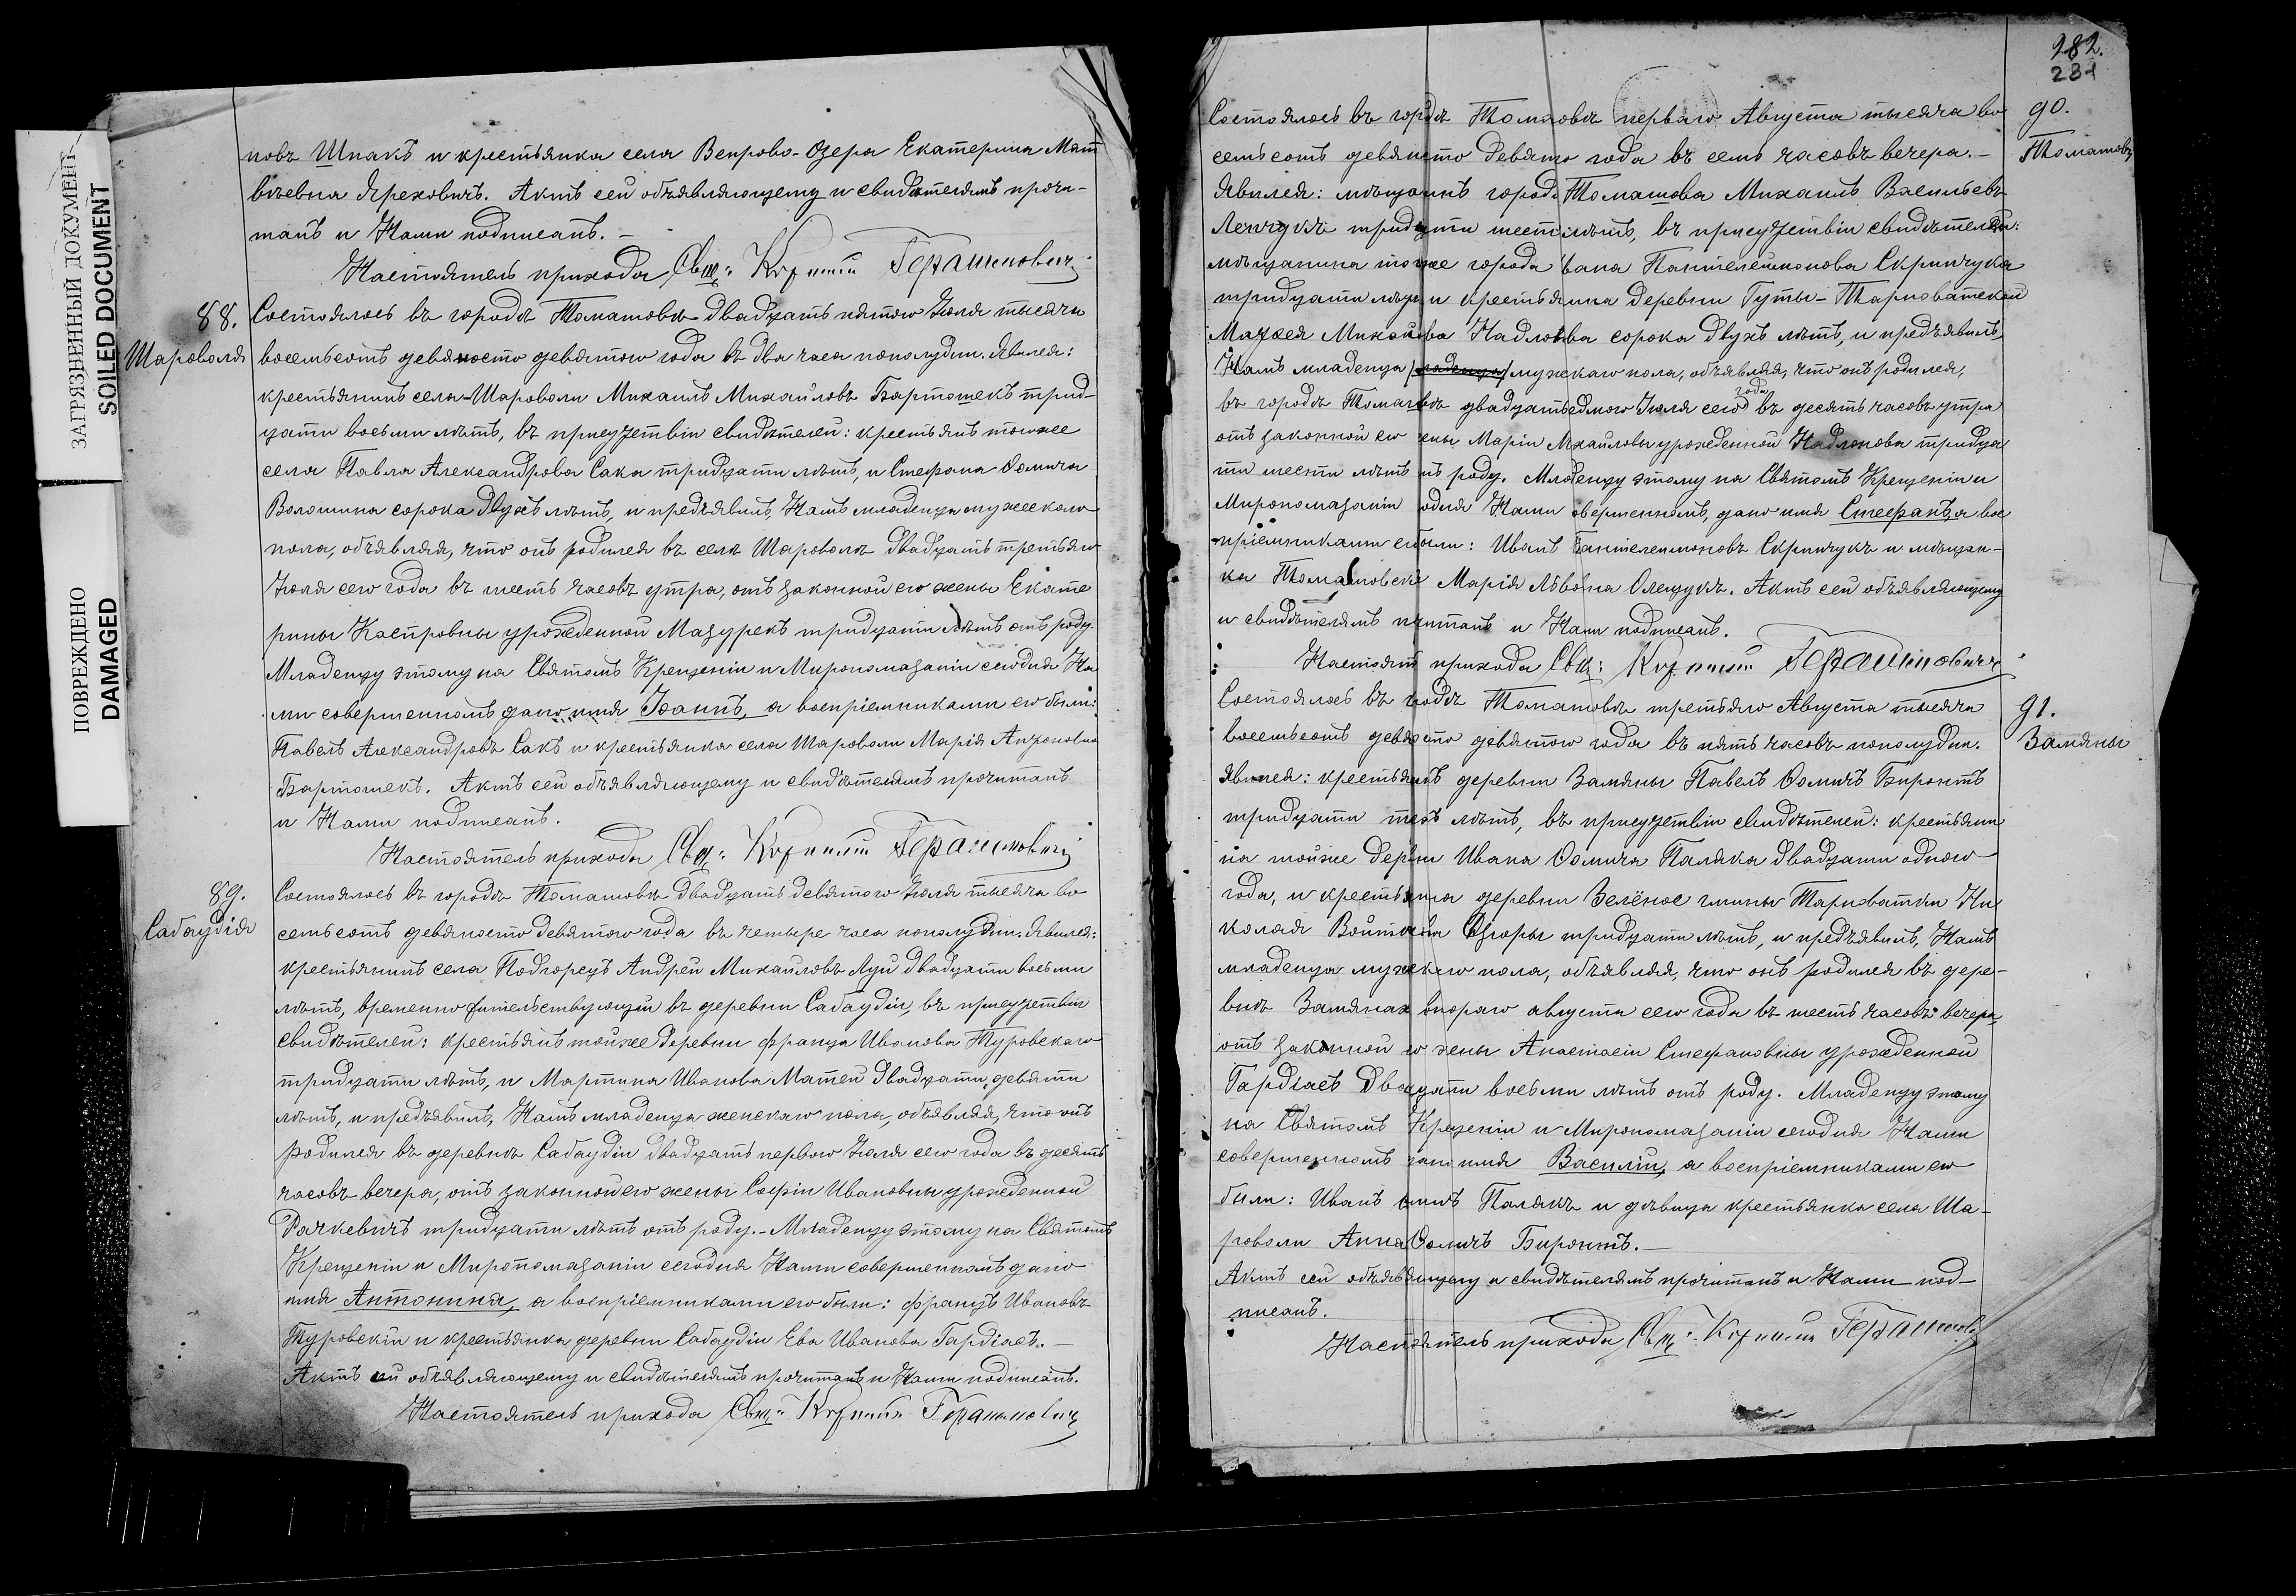 ЗАГРЯЗНЕННЫЙ ДОКУМЕНТ
SOILED DOCUMENT
ПОВРЕЖДЕНО
DAMAGED
новъ Шпакъ и крестьянка села Вепрово-Озера Екатерина Мат
вѣевна Яреховичъ. Актъ сей объявляющему и свидѣтелямъ прочи-
танъ и Нами подписанъ. –
Настоятель прихода Свщ: Герашимовичъ
88.
Шароволя
Состоялось въ городѣ Томашовѣ двадцать пятого Іюля тысяча
восемьсотъ девяносто девятого года въ два часа пополудни. Явился:
крестьянинъ села Шароволи Михаилъ Михайловъ Бартошекъ трид-
цати восьми лѣтъ, въ присутствіи свидѣтелей: крестьянъ тойже
села Павла Александрова Сака тридцати лѣтъ, и Стефана Ѳомича
Волошина сорока двухъ лѣтъ, и предъявилъ Намъ младенца мужескаго
пола, объявляя, что онъ родился въ селѣ Шароволѣ двадцать третьяго
Іюля сего года въ шесть часовъ утра, отъ законной его жены Екате
рины Каспровны урожденной Мазурекъ тридцати лѣтъ отъ роду.
Младенцу этому на Святомъ Крещеніи и Миропомазаніи сегодня На
ми совершенномъ дано имя Іоаннъ, а воспріемниками его были:
Павелъ Александровъ Сакъ и крестьянка села Шароволи Марія Антоновна
Бартошекъ. Актъ сей объявляющему и свидѣтелямъ прочитанъ
и Нами подписанъ.
Настоятель прихода Свщ: Герашимовичъ
89.
Сабаудія
Состоялось въ городѣ Томашовѣ двадцать девятого Іюля тысяча во
семьсотъ девяносто девятого года въ четыре часа пополудни. Явился:
крестьянинъ села Подгорецъ Андрей Михайловъ Луй двадцати восьми
лѣтъ, временно жительствующій въ деревни Сабаудіи, въ присутствіи
свидѣтелей: крестьянъ тойже деревни Франца Иванова Туровскаго
тридцати лѣтъ, и Мартина Иванова Матей двадцати девяти
лѣтъ, и предъявилъ Намъ младенца женскаго пола, объявляя, что онъ
родился въ деревнѣ Сабаудіи двадцать первого Іюля сего года въ десять
часовъ вечера, отъ законной его жены Софіи Ивановны урожденной
Рачкевичъ тридцати лѣтъ отъ роду. – Младенцу этому на Святомъ
Крещеніи и Миропомазаніи сегодня Нами совершенномъ дано
имя Антонина, а воспріемниками его были: Францъ Ивановъ
Туровскій и крестьянка деревни Сабаудіи Ева Иванова Гардіасъ. –
Актъ сей объявляющему и свидѣтелямъ прочитанъ и Нами подписанъ.
Настоятель прихода Свщ: Герашимовичъ
282.
281
90.
Томашовъ
Состоялось въ городѣ Томашовѣ перваго Августа тысяча во
семьсотъ девяносто девято года въ семь часовъ вечера. –
Явился: мѣщанинъ города Томашова Михаилъ Васильевъ
Ленчукъ тридцати шести лѣтъ, въ присутствіи свидѣтелей:
мѣщанина тогоже города Ивана Пантелеимонова Скрипчука
тридцати лѣтъ и крестьянина деревни Гуты-Тарноватской
Матѳея Михайлова Надлонова сорока двухъ лѣтъ, и предъявилъ
Намъ младенца мужскаго пола, объявляя, что онъ родился,
въ городѣ Томашовѣ двадцать седмого Іюля сего года въ десять часовъ утра
отъ законной его жены Маріи Михайловы урожденной Надлонова тридца
ти шести лѣтъ отъ роду. Младенцу этому на Святомъ Крещеніи и
Миропомазаніи сегодня Нами совершенномъ, дано имя Стефанъ, а вос
пріемниками его были: Иванъ Пантелеимоновъ Скрипчукъ и мѣщан-
ка Томашовска Марія Львовна Олещукъ. Актъ сей объявляющему
и свидѣтелямъ прочитанъ и Нами подписанъ.
Настоятель прихода Свщ: Герашимовичъ
91.
Замяны
Состоялось въ городѣ Томашовѣ третьяго Августа тысяча
восемьсотъ девяносто девятого года въ пять часовъ пополудни.
Явился: крестьянинъ деревни Замяны Павелъ Ѳомичъ Биронтъ
тридцати трехъ лѣтъ, въ присутствіи свидѣтелей: крестьяни
на тойже деревни Ивана Ѳомича Паляка двадцати одного
года, и крестьянина деревни Зелёное гмины Тарноватки Ни
колая Войткова тридцати лѣтъ, и предъявилъ Намъ
младенца мужскаго пола, объявляя, что онъ родился въ дере-
внѣ Замянах второго августа сего года въ шесть часовъ вечера,
отъ законной его жены Анастасіи Стефановны урожденной
Гардіасъ двадцати восьми лѣтъ отъ роду. Младенцу этому
на Святомъ Крещеніи и Миропомазаніи сегодня Нами
совершенномъ дано имя Василій, а воспріемниками его
были: Иванъ Ѳомичъ Палякъ и дѣвица крестьянка села Ша-
роволи Анна Ѳомичъ Биронтъ. –
Актъ сей объявляющему и свидѣтелямъ прочитанъ и Нами под-
писанъ.
Настоятель прихода Свщ: